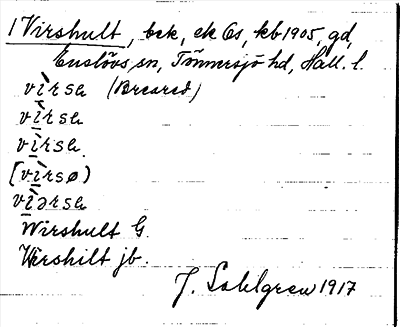 1 Virshult, bek, ek 6s, kb 1905, gd,
Enslövs sn, Tönnersjö hd, Hall. l.
vìrsa (Breared)
vìrsa
vìrsa
[vìrsø)
vìərsa
Wirshult G.
Wirshilt jb.
J. Sahlgren 1917